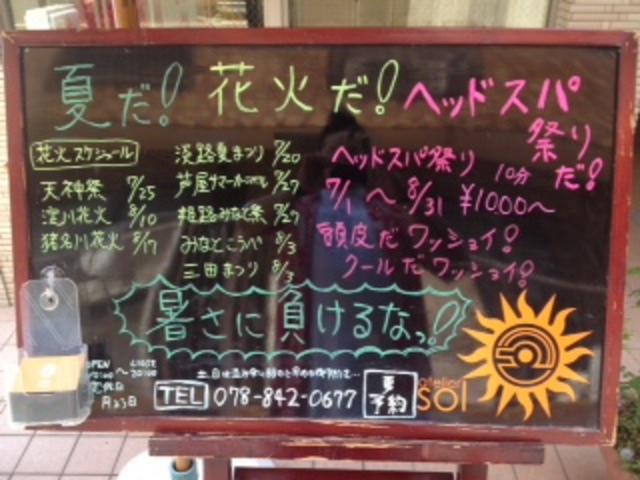 夏だ! 花火だ! ヘッドスパ
祭り
だ!
花火スケジュール
天神祭 7/25
淀川花火 8/10
猪名川花火 8/17
淡路夏まつり 7/20
芦屋サマーカーニバル 7/27
姫路みなと祭 7/27
みなとこうべ 8/3
三田まつり 8/3
ヘッドスパ祭り 10分
7/1 〜 8/31 ¥1000〜
頭皮だワッショイ!
クールだワッショイ!
暑さに負けるなっ!
OPEN CLOSE
〜20:00
定休日
TEL 078-842-0677
要予約
atelier
sol